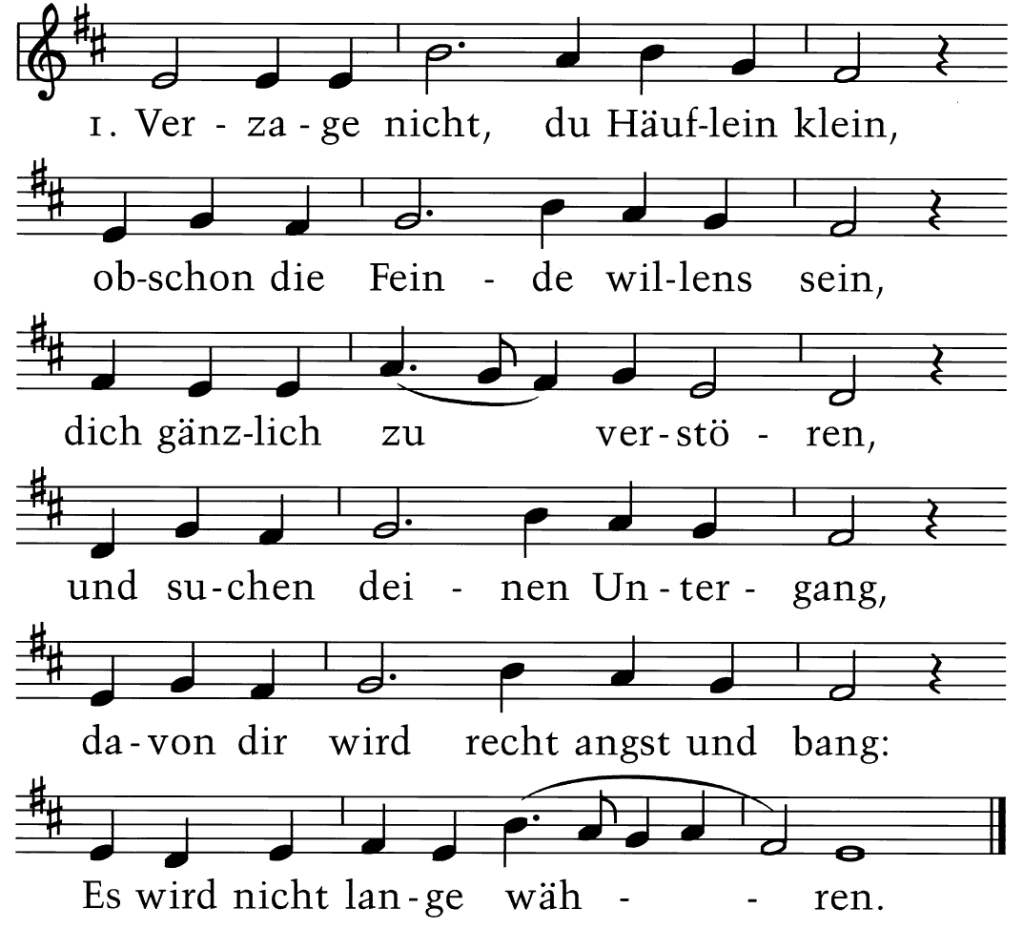 1. Ver - za - ge nicht, du Häuf-lein klein,
ob-schon die Fein - de wil-lens sein,
dich gänz-lich zu ver-stö - ren,
und su-chen dei - nen Un-ter - gang,
da-von dir wird recht angst und bang:
Es wird nicht lan-ge wäh - - ren.